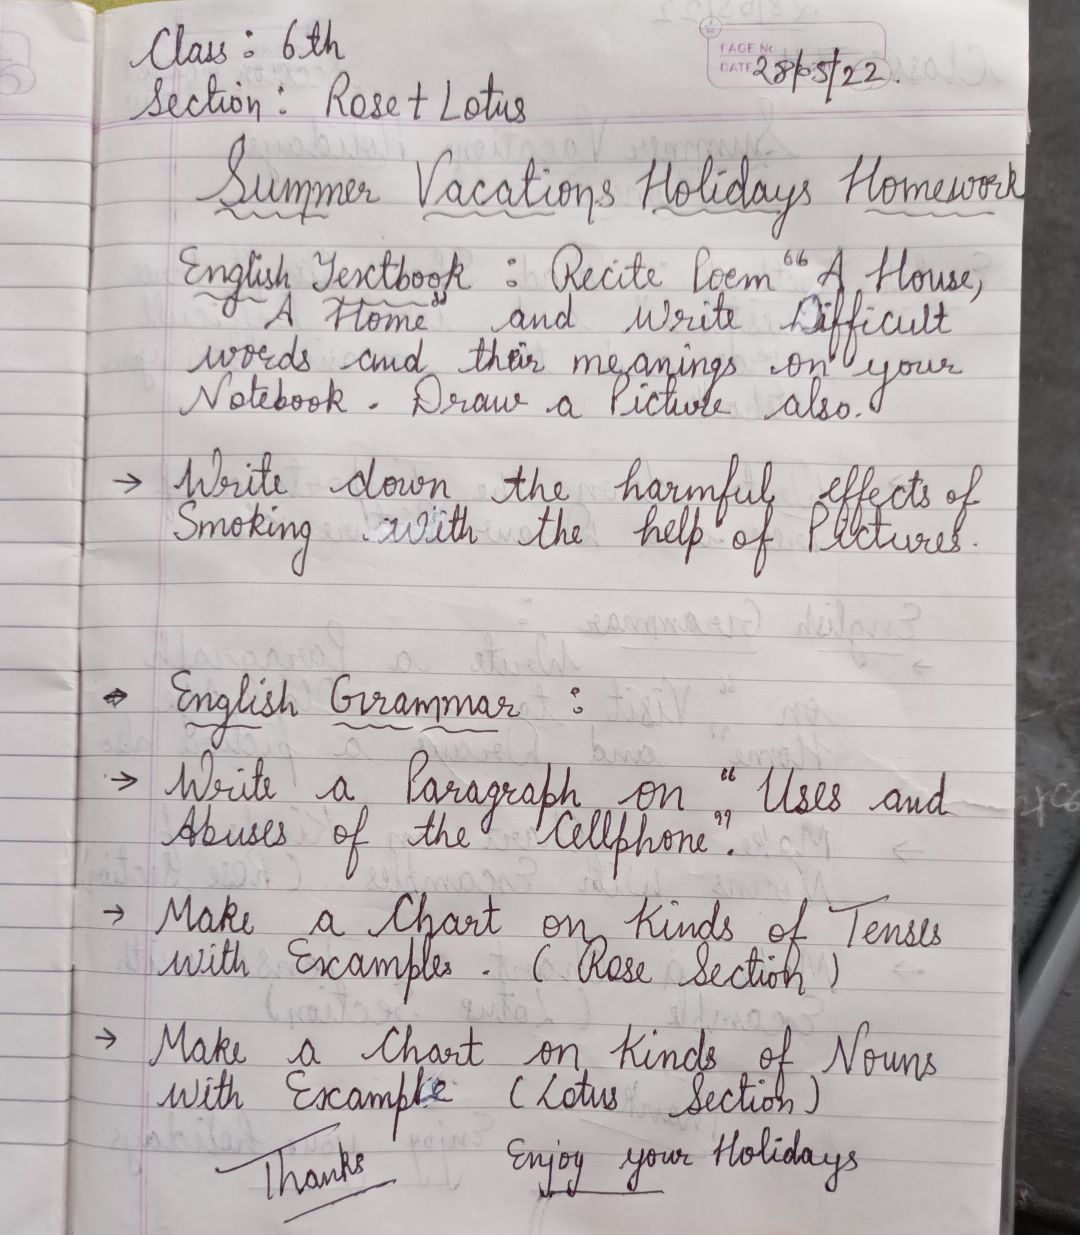 Class : 6th
PAGE No
DATE 28/05/22.
Section : Rose + Lotus
Summer Vacations Holidays Homework
English Textbook : Recite Poem "A House,
A Home" and Write Difficult
words and their meanings on your
Notebook. Draw a Picture also.
→ Write down the harmful effects of
Smoking with the help of Pictures.
→ English Grammar :
→ Write a Paragraph on "Uses and
Abuses of the Cellphone".
→ Make a Chart on Kinds of Tenses
with Examples. (Rose Section)
→ Make a Chart on Kinds of Nouns
with Example (Lotus Section)
Thanks Enjoy your Holidays